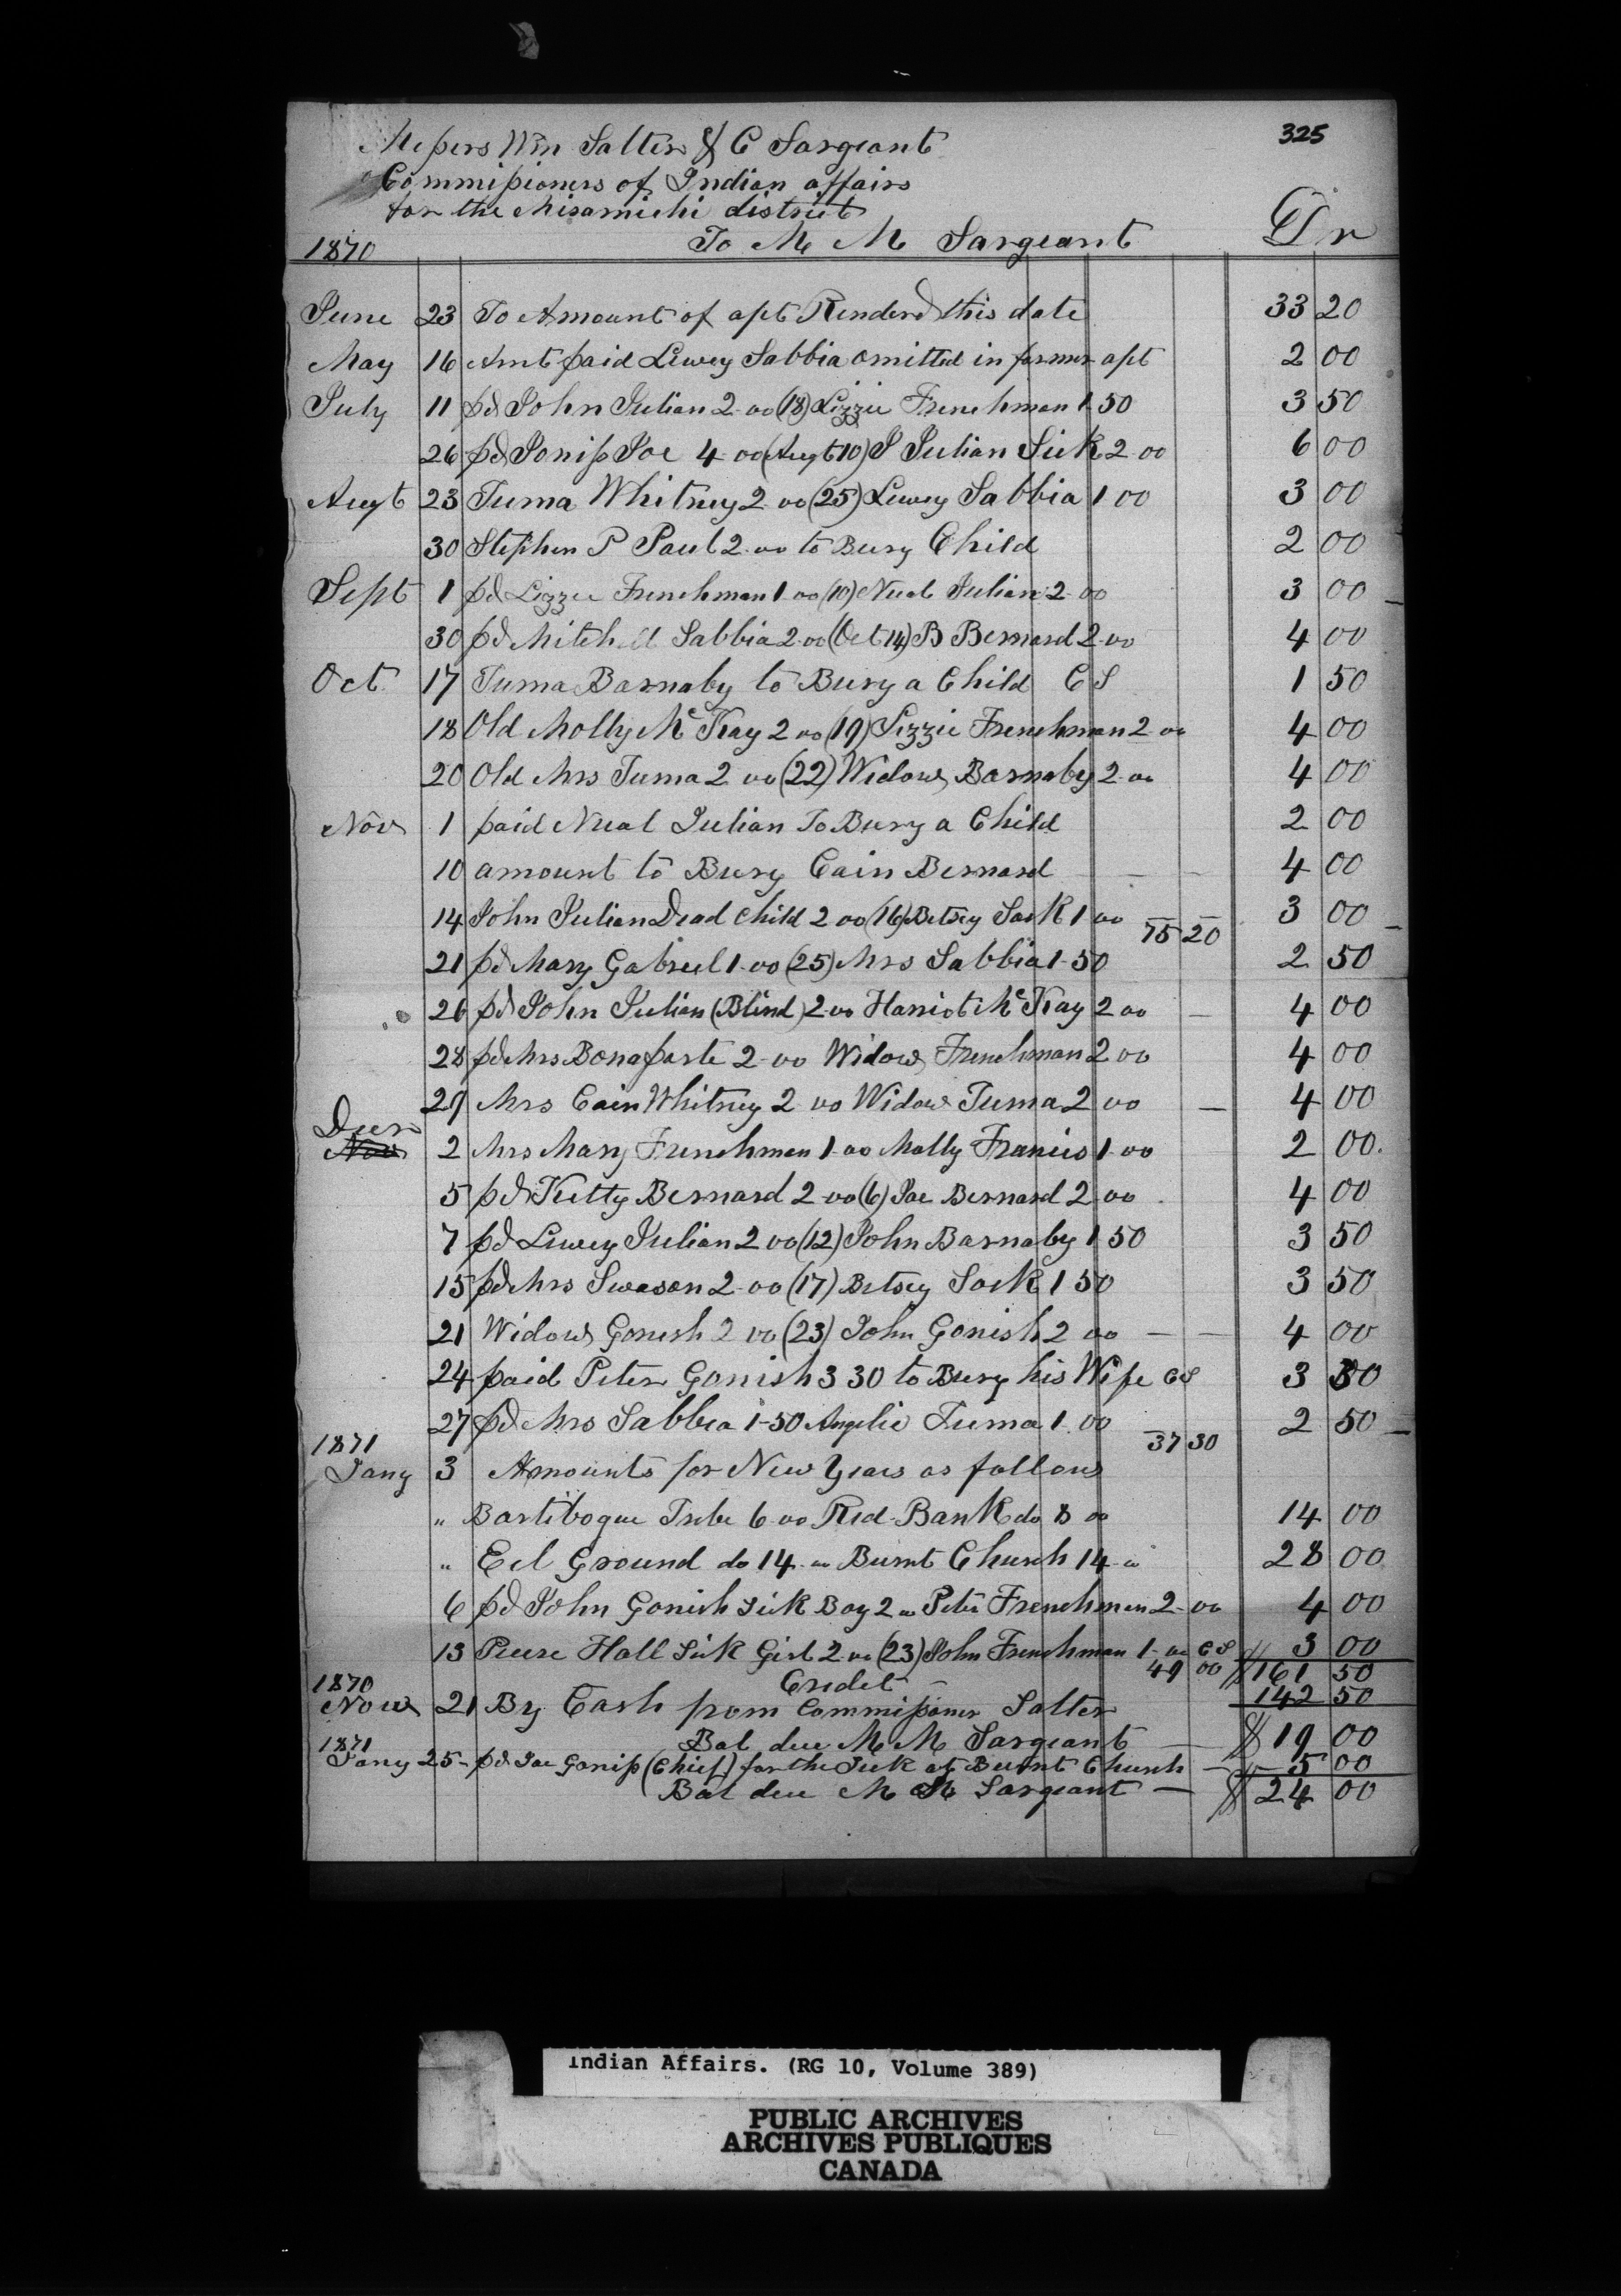 325
Messrs Wm Salter & C Sargeant
Commissioners of Indian affairs
for the Miramichi district
1870 To M M Sargeant Dr
June 23 To Amount of apt Renderd this date 33 20
May 16 Amt paid Lewey Sabbia omitted in former apt 2 00
July 11 pd John Julian 2-00 (18) Lizzie Frenchman 1 50 3 50
26 pd Joniss Joe 4-00 (Augt 10) P Julian Sick 2 00 6 00
Augt 23 Tuma Whitney 2-00 (25) Lewey Sabbia 1 00 3 00
30 Stephen P Paul 2-00 to Bury Child 2 00
Sept 1 pd Lizzie Frenchman 1-00 (10) Nual Julian 2-00 3 00
30 pd Mitchell Sabbia 2-00 (Oct 14) B Bernard 2-00 4 00
Oct 17 Tuma Barnaby to Bury a Child C S 1 50
18 Old Molly McKay 2 00 (19) Lizzie Frenchman 2-00 4 00
20 Old Mrs Tuma 2 00 (22) Widow Barnaby 2-00 4 00
Nov 1 paid Nual Julian To Bury a Child 2 00
10 amount to Bury Cain Bernard 4 00
14 John Julian Dead Child 2 00 (16) Betsey Sack 1 00 3 00
75 20
21 pd Mary Gabriel 1-00 (25) Mrs Sabbia 1-50 2 50
26 pd John Julian (Blind) 2-00 Harriot McKay 2 00 4 00
28 pd Mrs Bonaparte 2-00 Widow Frenchman 2 00 4 00
29 Mrs Cain Whitney 2 00 Widow Tuma 2 00 4 00
Decr
Nov 2 Mrs Mary Frenchman 1-00 Molly Francis 1-00 2 00
5 pd Kitty Bernard 2-00 (6) Joe Bernard 2-00 4 00
7 pd Lewey Julian 2 00 (12) John Barnaby 1 50 3 50
15 pd Mrs Swason 2-00 (17) Betsey Sack 1 50 3 50
21 Widow Gonish 2 00 (23) John Gonish 2 00 4 00
24 paid Peter Gonish 3 30 to Bury his Wife C S 3 30
27 pd Mrs Sabbia 1-50 Angelic Tuma 1 00 2 50
37 30
1871
Jany 3 Amounts for New Years as follows
" Bartibogue Tribe 6-00 Red-Bank do 8 00 14 00
" Eel Ground do 14-00 Burnt Church 14-00 28 00
6 pd John Gonish Sick Boy 2 00 Peter Frenchman 2-00 4 00
13 Peere Hall Sick Girl 2-00 (23) John Frenchman 1-00 C S 3 00
49 00 $161 50
Credit
1870
Nov 21 By Cash from Commissioner Salter 142 50
Bal due M M Sargeant $19 00
1871
Jany 25- pd Joe Goniss (Chief) for the Sick at Burnt Church 5 00
Bal due M M Sargeant $24 00
Indian Affairs. (RG 10, Volume 389)
PUBLIC ARCHIVES
ARCHIVES PUBLIQUES
CANADA